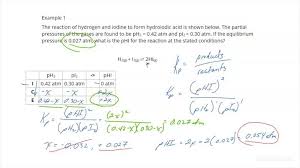 Example 1
The reaction of hydrogen and iodine to form hydroiodic acid is shown below. The partial
pressures of the gases are found to be pH₂ = 0.42 atm and pI₂ = 0.30 atm. If the equilibrium
pressure is 0.027 atm, what is the pHI for the reaction at the stated conditions?
H₂(g) + I₂(g) ⇌ 2HI(g)
Kp = products
reactants
pH₂ pI₂ ⇌ pHI
I 0.42 atm 0.30 atm
C -x -x +2x
E 0.42-x 0.30-x 2x
Kp = (pHI)²
(pH₂)(pI₂)
Kp = (pHI)² = (2x)² = 0.027 atm
(pH₂)(pI₂) (0.42-x)(0.30-x)
x = -0.032, +0.027
pHI = 2x = 2(0.027) = 0.054 atm